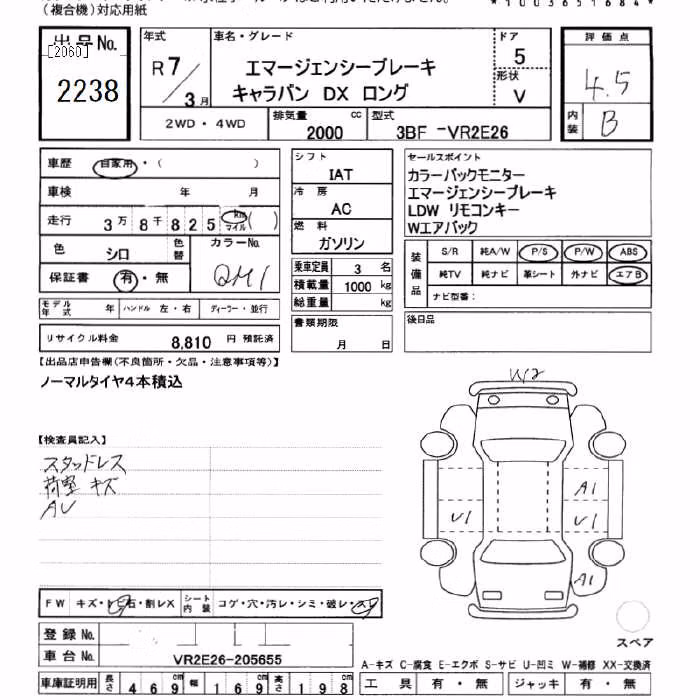 (複合機)対応用紙
*1003651684*
出品No.
[2060]
2238
年式
R7/3月
車名・グレード
エマージェンシーブレーキ
キャラバン DX ロング
ドア
5
形状
V
評価点
4.5
内装
B
2WD・4WD
排気量
2000 cc
型式
3BF -VR2E26
車歴 自家用・( )
車検 年 月
走行 3万8千825 km マイル ( )
色 シロ 色替
カラーNo.
QM1
保証書 有・無
モデル年式 年 ハンドル 左・右 ディーラー・並行
リサイクル料金 8,810 円 預託済
シフト
IAT
冷房
AC
燃料
ガソリン
乗車定員 3 名
積載量 1000 kg
総重量 kg
書類期限
月 日
セールスポイント
カラーバックモニター
エマージェンシーブレーキ
LDW リモコンキー
Wエアバック
装備品
S/R 純A/W P/S P/W ABS
純TV 純ナビ 革シート 外ナビ エアB
ナビ型番:
後日品
【出品店申告欄(不良箇所・欠品・注意事項等)】
ノーマルタイヤ4本積込
【検査員記入】
スタッドレス
荷室 キズ
AU
W2
A1
U1
U1
A1
スペア
FW キズ・トビ石・割レX
シート内装 コゲ・穴・汚レ・シミ・破レ・スレ
登録No.
車台No. VR2E26-205655
A-キズ C-腐食 E-エクボ S-サビ U-凹ミ W-補修 XX-交換済
車庫証明用 長さ 469 cm 幅 169 cm 高さ 198 cm
工具 有・無 ジャッキ 有・無